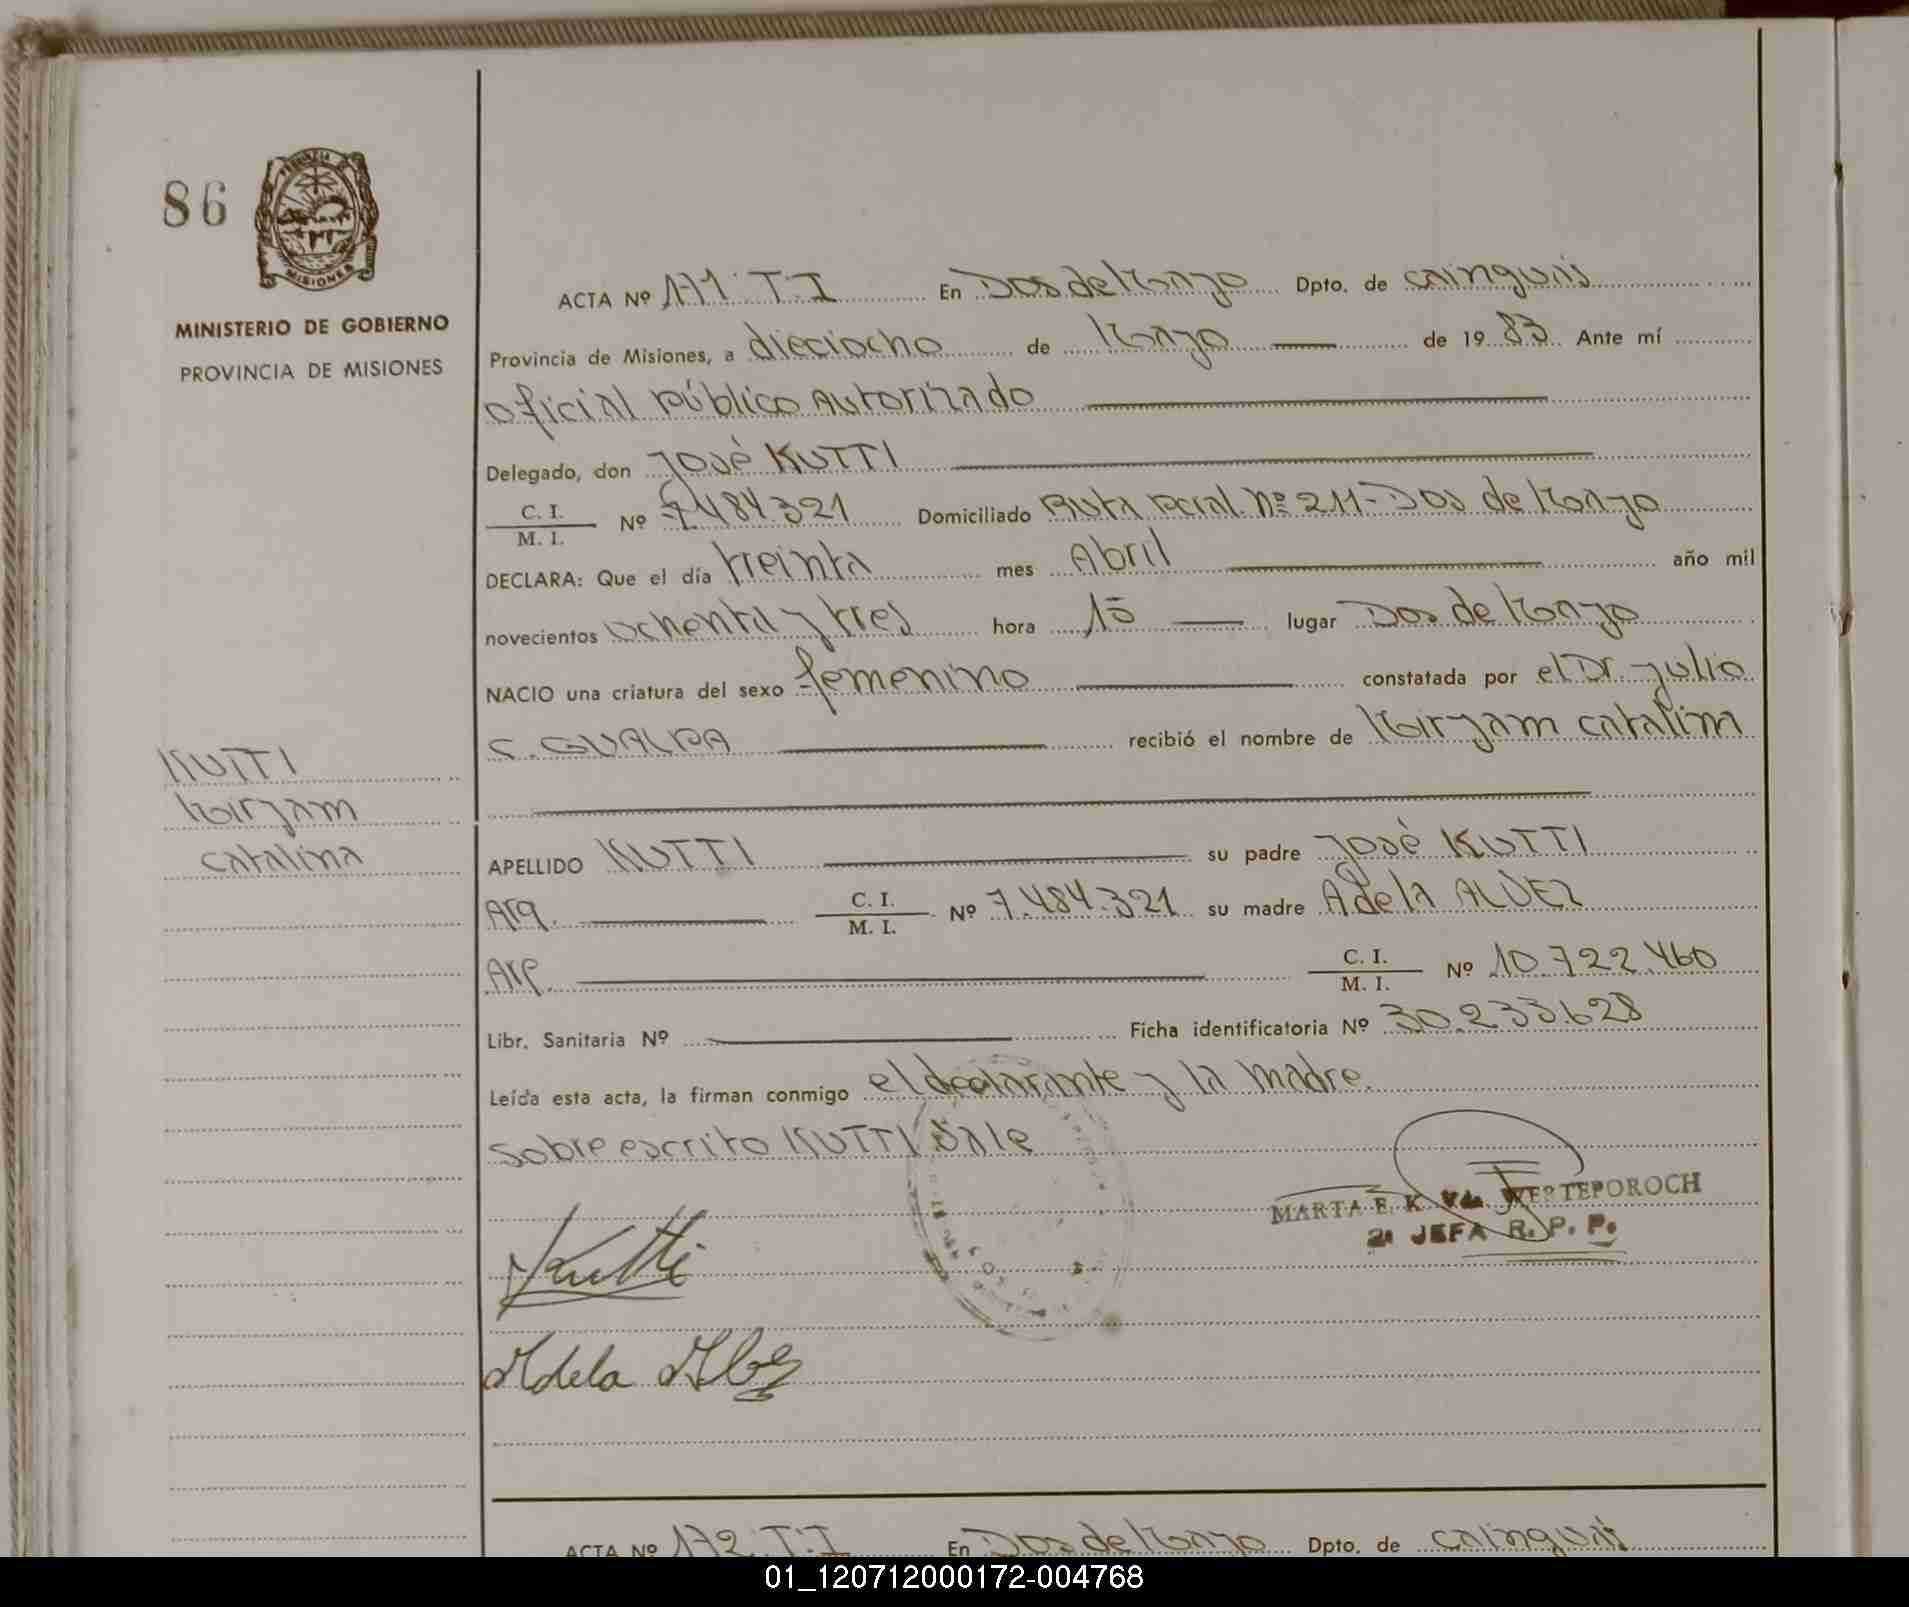 86
PROVINCIA DE
MISIONES
MINISTERIO DE GOBIERNO
PROVINCIA DE MISIONES
ACTA Nº 171. T.I En Dos de Mayo Dpto. de cainguás
Provincia de Misiones, a dieciocho de Mayo de 1983 Ante mí
oficial público Autorizado
Delegado, don José KUTTI
C. I.
M. I. Nº 7.484.321 Domiciliado Ruta Pcial Nº 211-Dos de Mayo
DECLARA: Que el día treinta mes Abril año mil
novecientos ochenta y tres hora 15 lugar Dos de Mayo
NACIO una criatura del sexo femenino constatada por el Dr. Julio
C. GUALPA recibió el nombre de Miryam Catalina
KUTTI
Miryam
Catalina
APELLIDO KUTTI su padre José KUTTI
Arg. C. I.
M. I. Nº 7.484.321 su madre Adela ALVEZ
Arg. C. I.
M. I. Nº 10.722.460
Libr. Sanitaria Nº Ficha identificatoria Nº 30.233.628
Leída esta acta, la firman conmigo el declarante y la madre.
Sobre escrito KUTTI Vale
MARTA E. K. Vda. WERTEPOROCH
2ª JEFA R. P. P.
Kutti
Adela Albez
ACTA Nº 172. T.I En Dos de Mayo Dpto. de cainguás
01_120712000172-004768